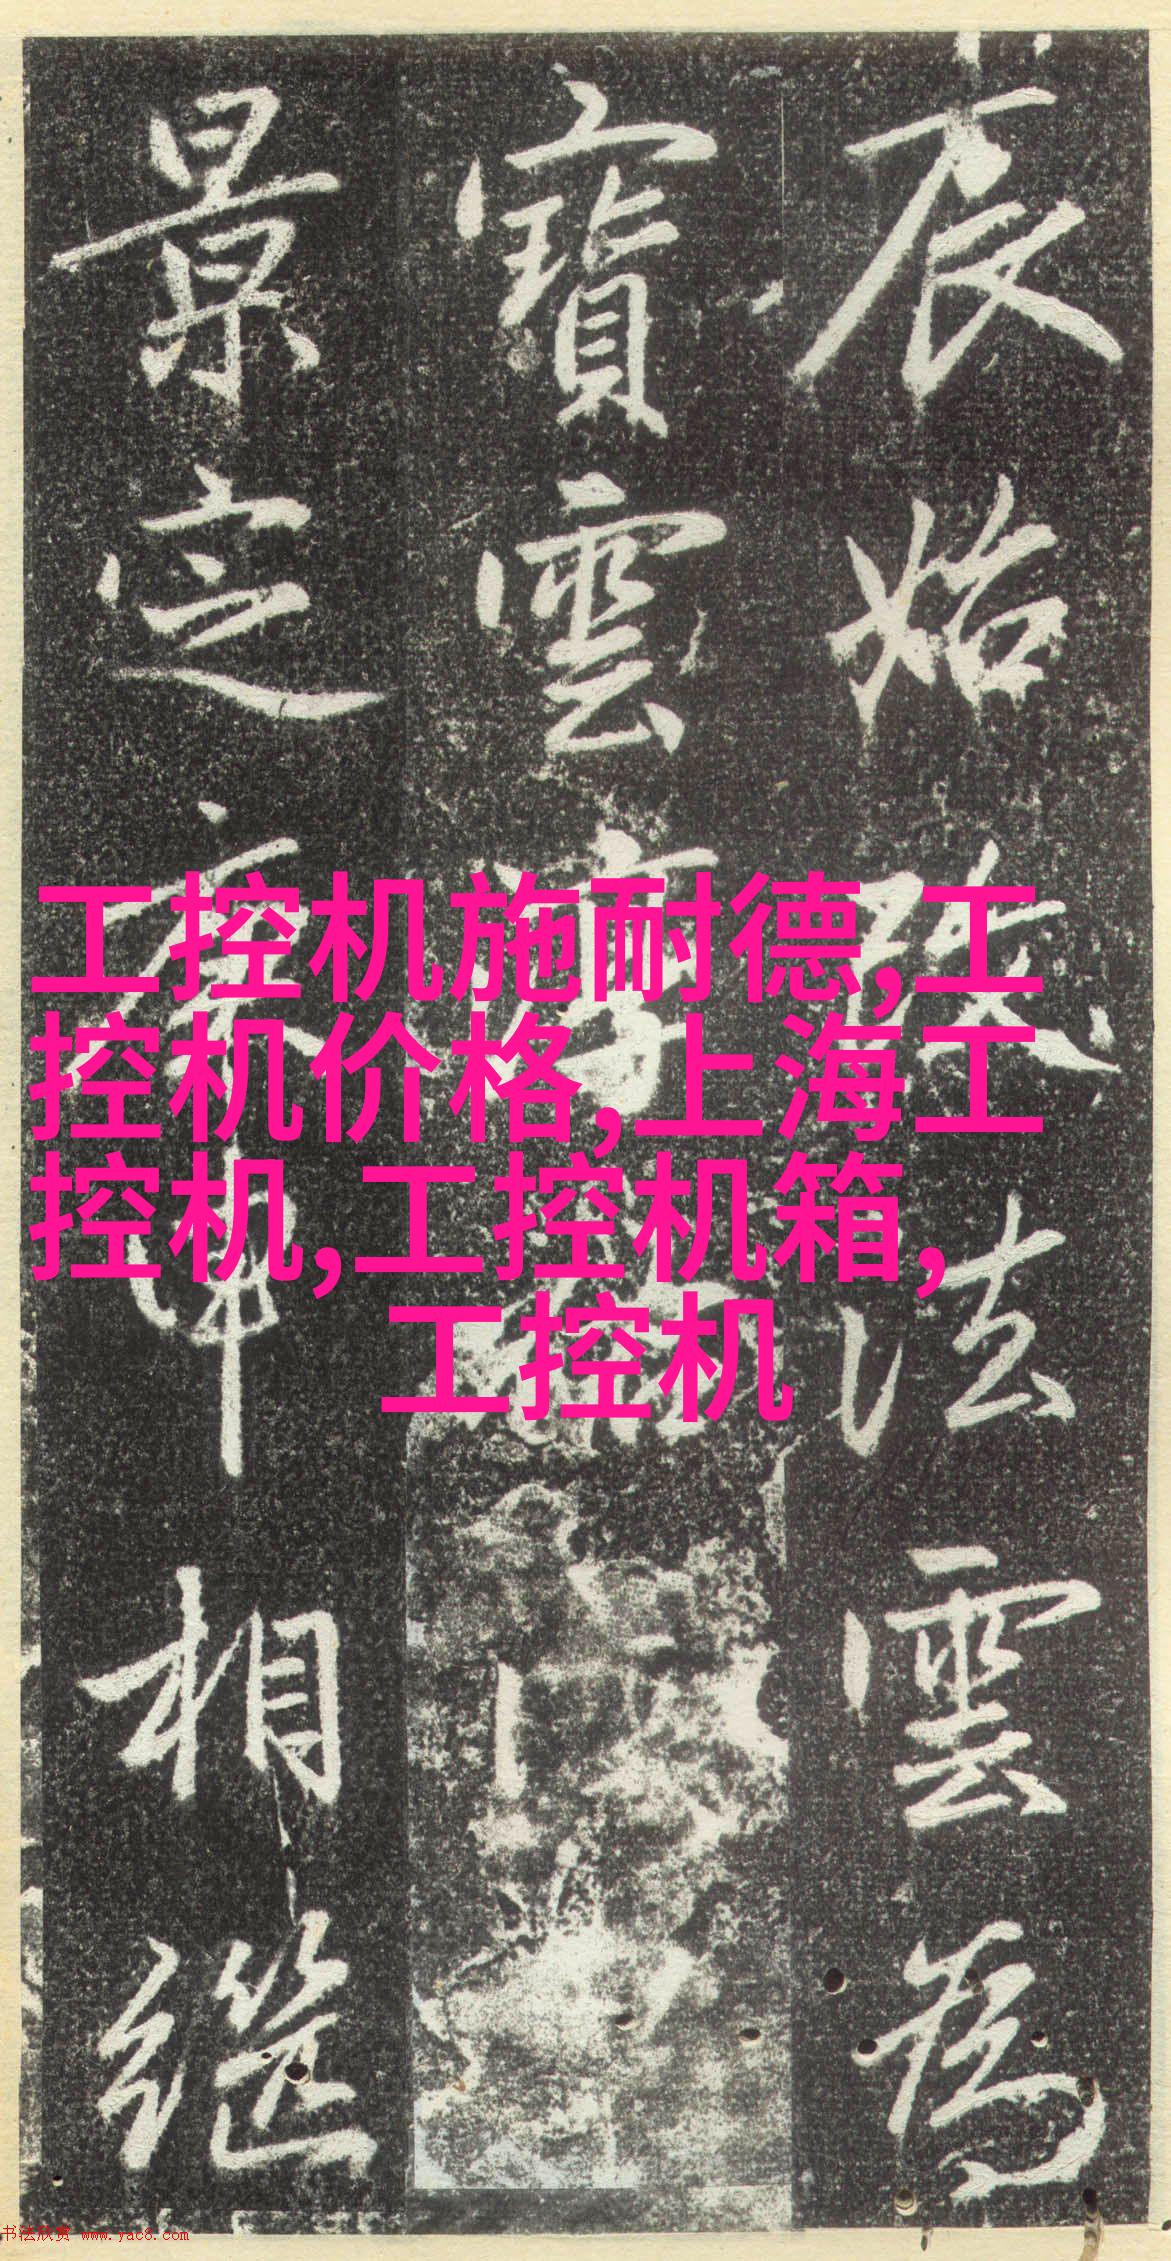 辰始陛法雲爲
寶雲寧
景定庚申相繼
工控机施耐德,工
控机价格,上海工
控机,工控机箱,
工控机
书法欣赏 www.yac8.com